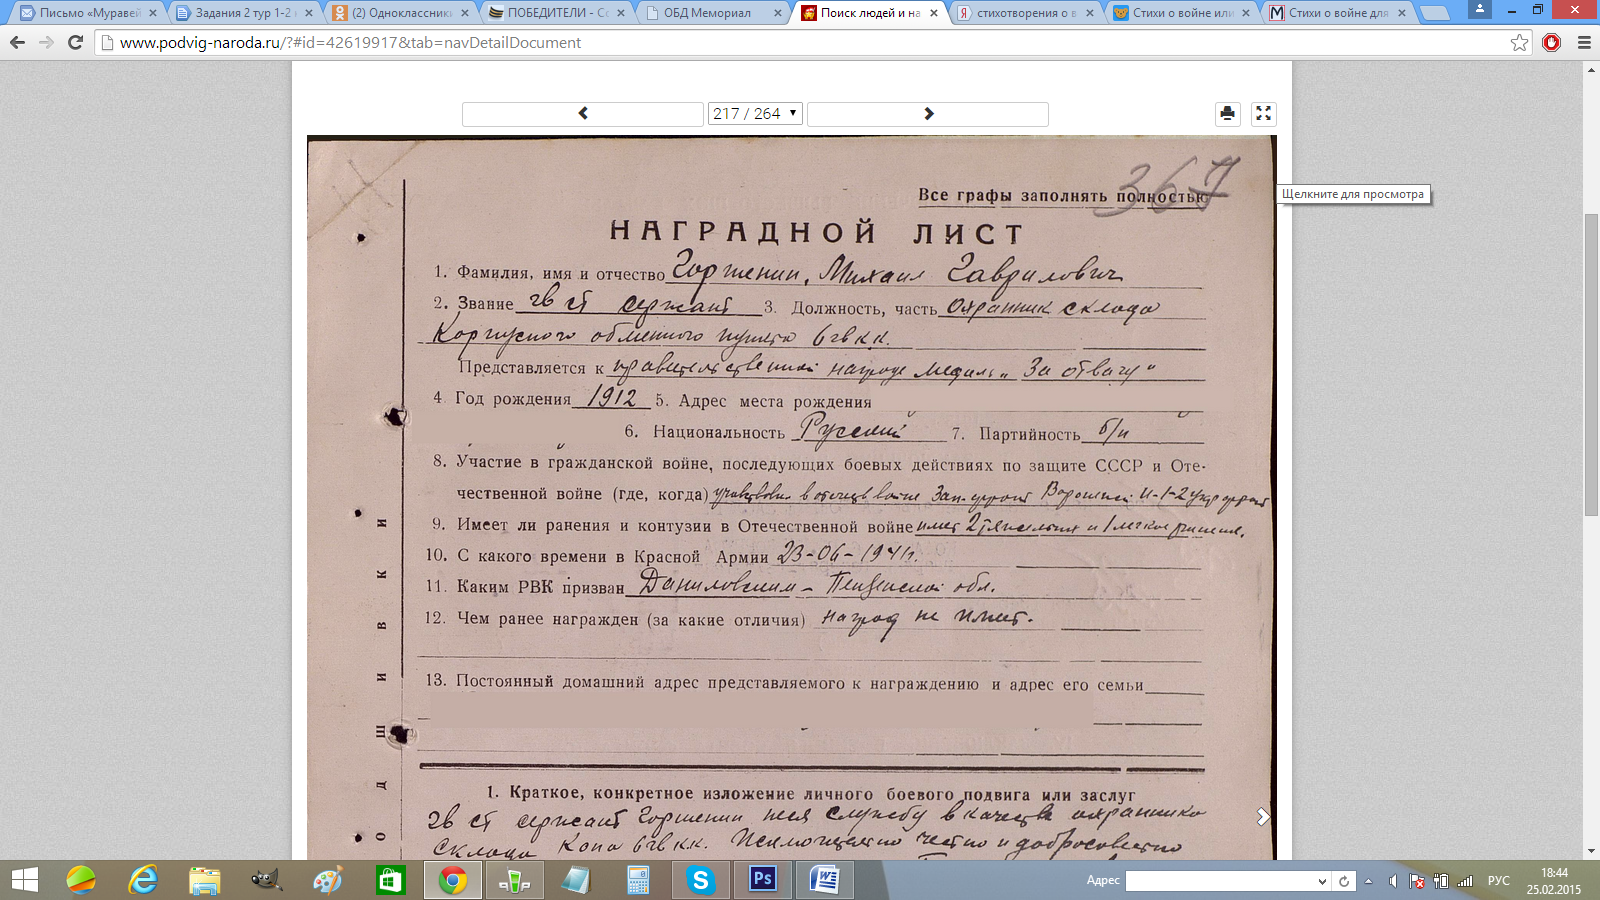 Письмо «Муравей
Задания 2 тур 1-2 к
(2) Одноклассники
ПОБЕДИТЕЛИ - Со
ОБД Мемориал
Поиск людей и на
стихотворения о в
Стихи о войне или
Стихи о войне для
www.podvig-naroda.ru/?#id=42619917&tab=navDetailDocument
217 / 264
367
Щелкните для просмотра
Все графы заполнять полностью
НАГРАДНОЙ ЛИСТ
1. Фамилия, имя и отчество Горшенин, Михаил Гаврилович
2. Звание гв ст сержант 3. Должность, часть охранник склада
Корпусного обменного пункта 6 гв к.к.
Представляется к правительственной награде медаль „За отвагу"
4. Год рождения 1912 5. Адрес места рождения
6. Национальность Русский 7. Партийность б/п
8. Участие в гражданской войне, последующих боевых действиях по защите СССР и Оте-
чественной войне (где, когда) участвовал в отечеств войне Зап. фронт Воронеж и-1-2 укр фронт
9. Имеет ли ранения и контузии в Отечественной войне имеет 2 тяжелых и 1 легкое ранение.
10. С какого времени в Красной Армии 23-06-1941г.
11. Каким РВК призван Даниловским - Пензенской обл.
12. Чем ранее награжден (за какие отличия) наград не имеет.
13. Постоянный домашний адрес представляемого к награждению и адрес его семьи
1. Краткое, конкретное изложение личного боевого подвига или заслуг
Гв ст сержант Горшенин неся службу в качестве охранника
склада Копа 6 гв к.к. Исключительно честно и добросовестно
о д ш и в к и
Адрес
РУС
18:44
25.02.2015